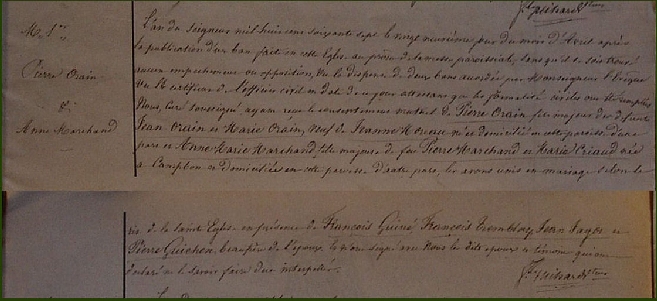 M. 1er
Pierre Orain
&
Anne Marchand
L'an du Seigneur mil huit cent soixante sept le vingt neuvième jour du mois d'Avril après
la publication d'un ban fait en cette Eglise au prône de la messe paroissiale, sans qu'il se soit trouvé
aucun empêchement ou opposition, Vu la dispense de deux bans accordée par Monseigneur l'Evêque
Vu le certificat de l'officier civil en date de ce jour attestant que les formalités civiles ont été remplies
Nous, curé soussigné ayant reçu le consentement mutuel de Pierre Orain, fils majeur des défunts
Jean Orain et Marie Orain, veuf de Jeanne né et domicilié en cette paroisse d'une
part et Anne Marie Marchand fille majeure de feu Pierre Marchand et Marie Criaud née
à Campbon et domiciliée en cette paroisse d'autre part, les avons unis en mariage selon le
rit de la Sainte Eglise en présence de François Guiné François Jean Jager et
Pierre Guichon, beau père de l'épouse, le signé avec nous les dits époux et témoins qui ont
déclaré ne le savoir faire de ce interpellés.